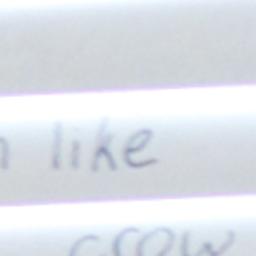 like
crow